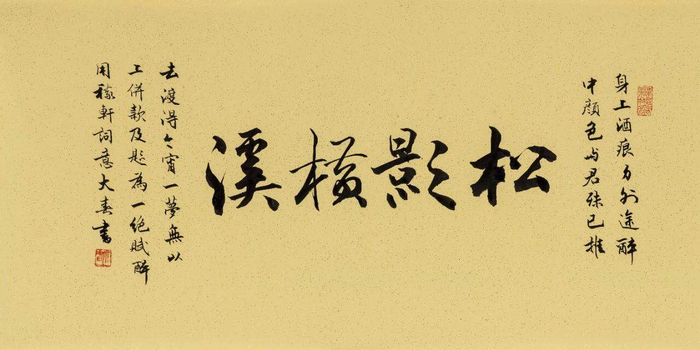 身上酒痕途醉
中顏色与君殊已推
松影橫溪
去渡得今宵一夢無以
工併款及題為一絕賦醉
用稼軒詞意大春書